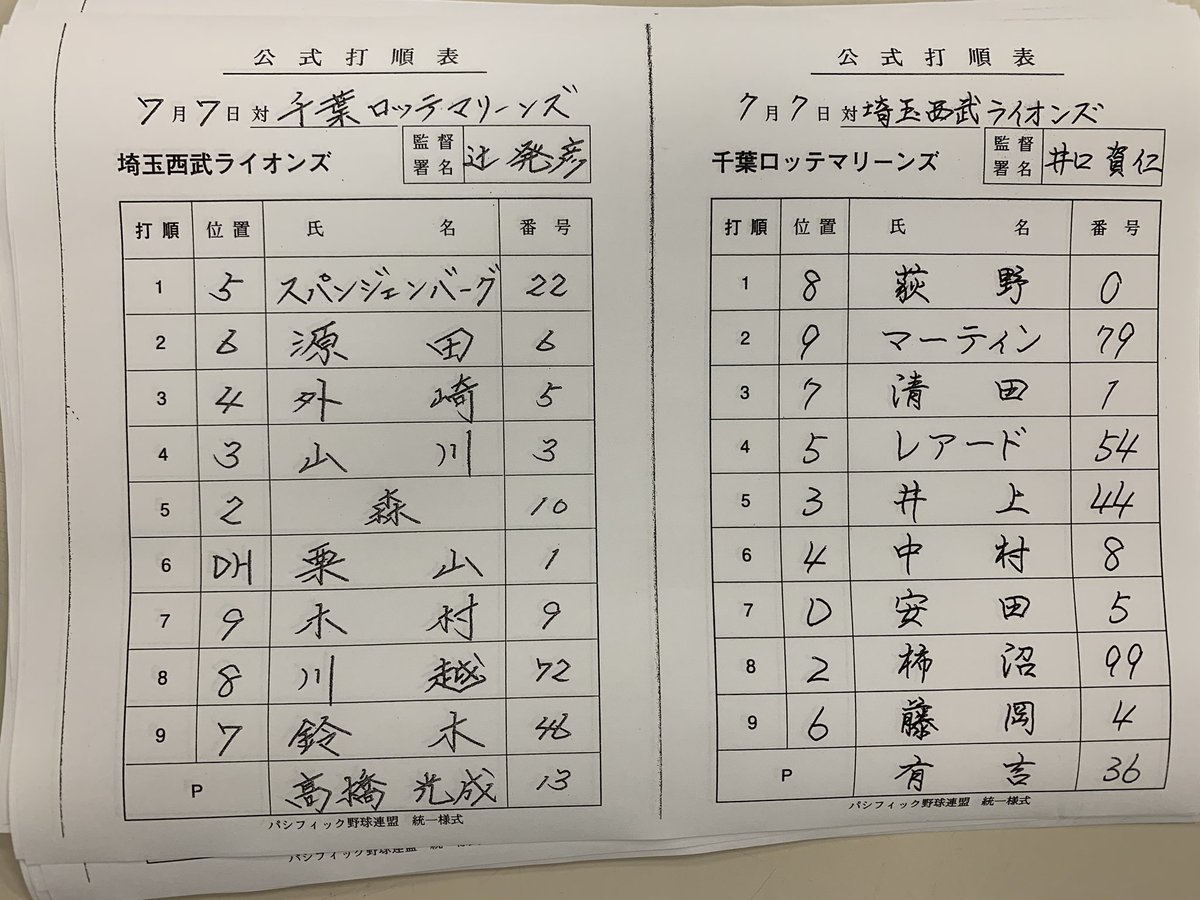 公式打順表
7月7日対千葉ロッテマリーンズ
埼玉西武ライオンズ 監督署名 辻 発彦
打順 位置 氏名 番号
1 5 スパンジェンバーグ 22
2 6 源田 6
3 4 外崎 5
4 3 山川 3
5 2 森 10
6 DH 栗山 1
7 9 木村 9
8 8 川越 72
9 7 鈴木 46
P 高橋光成 13
パシフィック野球連盟 統一様式
公式打順表
7月7日対埼玉西武ライオンズ
千葉ロッテマリーンズ 監督署名 井口 資仁
打順 位置 氏名 番号
1 8 荻野 0
2 9 マーティン 79
3 7 清田 1
4 5 レアード 54
5 3 井上 44
6 4 中村 8
7 D 安田 5
8 2 柿沼 99
9 6 藤岡 4
P 有吉 36
パシフィック野球連盟 統一様式
パシフィック野球連盟